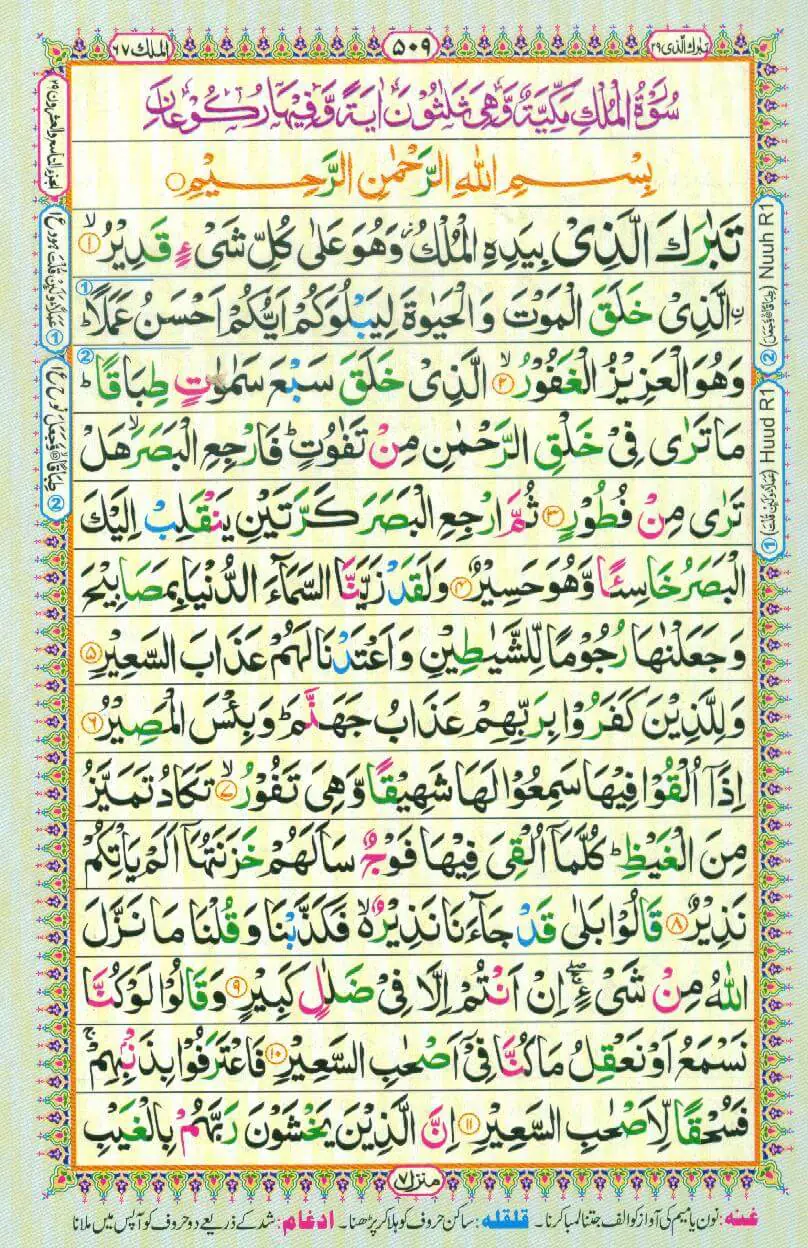 تبارک الذی ۲۹
۵۰۹
الملک ۶۷
سُوْرَةُ الْمُلْكِ مَكِّيَّةٌ وَّهِىَ ثَلٰثُوْنَ اٰيَةً وَّفِيْهَا رُكُوْعَانِ
بِسْمِ اللهِ الرَّحْمٰنِ الرَّحِيْمِ ○
تَبٰرَكَ الَّذِىْ بِيَدِهِ الْمُلْكُ ز وَهُوَ عَلٰى كُلِّ شَىْءٍ قَدِيْرُ ۙ ۱
ۨالَّذِىْ خَلَقَ الْمَوْتَ وَالْحَيٰوةَ لِيَبْلُوَكُمْ اَيُّكُمْ اَحْسَنُ عَمَلًا ؕ ①
وَهُوَ الْعَزِيْزُ الْغَفُوْرُ ۙ ۲ الَّذِىْ خَلَقَ سَبْعَ سَمٰوٰتٍ طِبَاقًا ؕ ②
مَا تَرٰى فِىْ خَلْقِ الرَّحْمٰنِ مِنْ تَفٰوُتٍ ؕ فَارْجِعِ الْبَصَرَ ۙ هَلْ
تَرٰى مِنْ فُطُوْرٍ ۳ ثُمَّ ارْجِعِ الْبَصَرَ كَرَّتَيْنِ يَنْقَلِبْ اِلَيْكَ
الْبَصَرُ خَاسِئًا وَّهُوَ حَسِيْرٌ ۴ وَلَقَدْ زَيَّنَّا السَّمَآءَ الدُّنْيَا بِمَصَابِيْحَ
وَجَعَلْنٰهَا رُجُوْمًا لِّلشَّيٰطِيْنِ وَاَعْتَدْنَا لَهُمْ عَذَابَ السَّعِيْرِ ۵
وَلِلَّذِيْنَ كَفَرُوْا بِرَبِّهِمْ عَذَابُ جَهَنَّمَ ؕ وَبِئْسَ الْمَصِيْرُ ۶
اِذَآ اُلْقُوْا فِيْهَا سَمِعُوْا لَهَا شَهِيْقًا وَّهِىَ تَفُوْرُ ۙ ۷ تَكَادُ تَمَيَّزُ
مِنَ الْغَيْظِ ؕ كُلَّمَآ اُلْقِىَ فِيْهَا فَوْجٌ سَاَلَهُمْ خَزَنَتُهَآ اَلَمْ يَاْتِكُمْ
نَذِيْرٌ ۸ قَالُوْا بَلٰى قَدْ جَآءَنَا نَذِيْرٌ ۵ۙ فَكَذَّبْنَا وَقُلْنَا مَا نَزَّلَ
اللهُ مِنْ شَىْءٍ ۚۖ اِنْ اَنْتُمْ اِلَّا فِىْ ضَلٰلٍ كَبِيْرٍ ۹ وَقَالُوْا لَوْ كُنَّا
نَسْمَعُ اَوْ نَعْقِلُ مَا كُنَّا فِىْٓ اَصْحٰبِ السَّعِيْرِ ۱۰ فَاعْتَرَفُوْا بِذَنْۢبِهِمْ ۚ
فَسُحْقًا لِّاَصْحٰبِ السَّعِيْرِ ۱۱ اِنَّ الَّذِيْنَ يَخْشَوْنَ رَبَّهُمْ بِالْغَيْبِ
② Nuuh R1 (طِبَاقًا وَّجَعَلَ)
① Huud R1 (عَمَلًا وَلَئِنْ قُلْتَ)
الجزء التاسع والعشرون ۲۹
① عَمَلًا وَلَئِنْ قُلْتَ ہود ع۱
② طِبَاقًا وَّجَعَلَ نوح ع۱
منزل ۷
غنہ: نون یا میم کی آواز کو الف جتنا لمبا کرنا۔ قلقلہ: ساکن حروف کو ہلا کر پڑھنا۔ ادغام: شد کے ذریعے دو حروف کو آپس میں ملانا